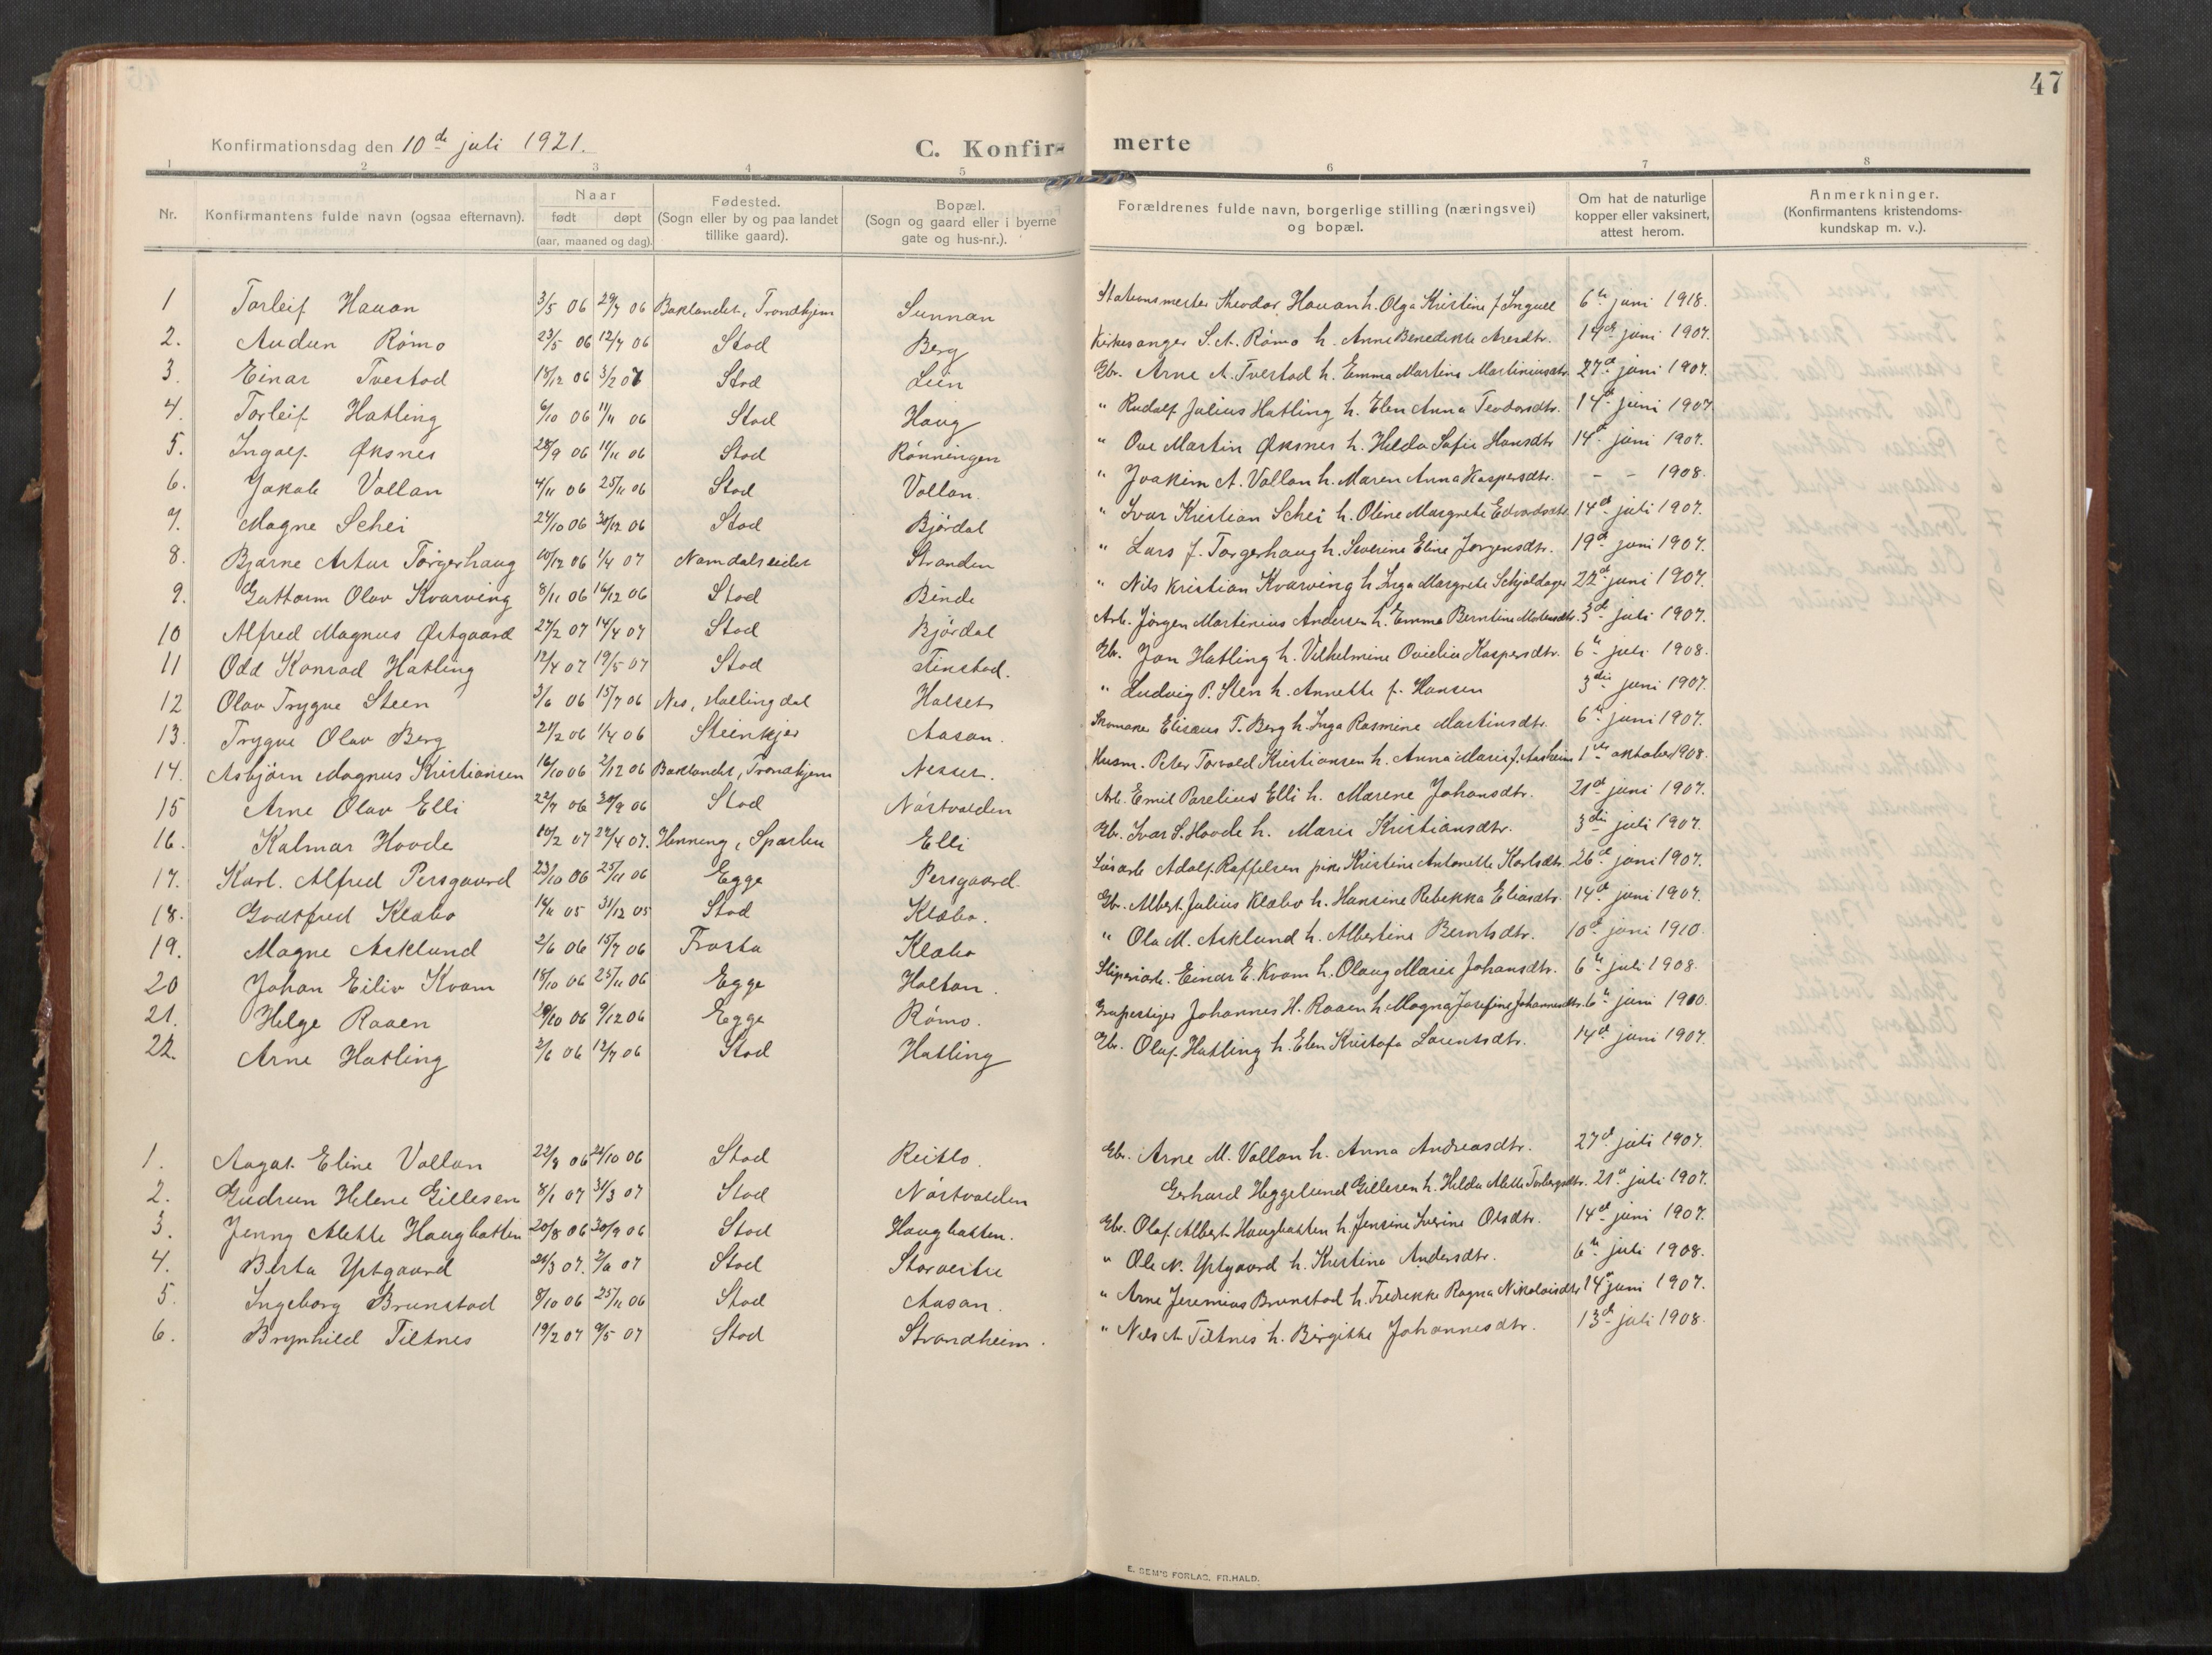 47
Konfirmationsdag den 10de juli 1921. C. Konfir- merte
1 2 3 4 5 6 7 8
Nr. Konfirmantens fulde navn (ogsaa efternavn). Naar født døpt (aar, maaned og dag). Fødested. (Sogn eller by og paa landet tillike gaard). Bopæl. (Sogn og gaard eller i byerne gate og hus-nr.). Forældrenes fulde navn, borgerlige stilling (næringsvei) og bopæl. Om hat de naturlige kopper eller vaksinert, attest herom. Anmerkninger. (Konfirmantens kristendoms- kundskap m. v.).
1 Torleif Hauan 3/5 06 29/7 06 Baklandet, Trondhjem Sunnan Stationsmester Theodor Hauan h. Olga Kristine f. Ingvell 6te juni 1918.
2. Audun Rømo 23/5 06 12/7 06 Stod Berg Kirkesanger S. A. Rømo h. Anne Benedikte Aresdtr. 14de juni 1907.
3. Einar Tvestad 18/12 06 3/2 07 Stod Lein Gbr. Arne A. Tvestad h. Emma Martine Martiniusdtr. 27de juni 1907.
4. Torleif Hatling 6/10 06 11/11 06 Stod Haug " Rudolf Julius Hatling h. Elen Anna Teodorsdtr. 14de juni 1907
5. Ingolf Øksnes 28/9 06 11/11 06 Stod Rønningen " Ove Martin Øksnes h. Helda Sofie Hansdtr 14de juni 1907.
6. Jakob Vollan 4/11 06 25/11 06 Stod Vollan. " Joakim A. Vollan h. Maren Anna Kaspersdtr. - - 1908.
7. Magne Schei 27/10 06 30/12 06 Stod Bjørdal " Ivar Kristian Schei h. Oline Margrete Edvardsdtr 14de juli 1907.
8. Bjarne Artur Torgerhaug 10/12 06 1/4 07 Namdalseidet Stranden " Lars J. Torgerhaug h. Severine Eline Jørgensdtr. 19de juni 1907.
9. Guttorm Olav Kvarving 8/11 06 16/12 06 Stod Binde " Nils Kristian Kvarving h. Inga Margrete Schjoldager 22de juni 1907.
10 Alfred Magnus Østgaard 27/2 07 14/4 07 Stod Bjørdal Arb. Jørgen Martinius Andersen h. Emma Berntine Mortensdtr. 3de juli 1907.
11 Odd Konrad Hatling 12/4 07 19/5 07 Stod Finstad. Gbr. Jon Hatling h. Vilhelmine Ovidia Kaspersdtr. 6te juli 1908.
12 Olav Trygve Steen 3/6 06 15/7 06 Nes, Hallingdal Halset " Ludvig P. Sten h. Annette f. Hansen 3die juni 1907.
13. Trygve Olav Berg 27/2 06 1/4 06 Steinkjer Aasan. Skomaker Elisæus T. Berg h. Inga Rasmine Martinsdtr. 6te juni 1907.
14. Asbjørn Magnus Kristiansen 16/10 06 2/12 06 Baklandet, Trondhjem Nesset. Husm. Peter Torvald Kristiansen h. Anna Marie f. Aasheim 1ste oktober 1908.
15 Arne Olav Elli 22/7 06 30/9 06 Stod Nørtvalden Arb. Emil Parelius Elli h. Marene Johansdtr. 21de juni 1907.
16. Kalmar Hovde 10/2 07 22/4 07. Henning, Sparbu Elli Gbr. Ivar S. Hovde h. Marie Kristiansdtr. 3die juli 1907.
17. Karl. Alfred Persgaard 23/10 06 25/11 06 Egge Persgaard. Løsarb. Adolf Roffelsen pike Kristine Antonette Karlsdtr. 26de juni 1907.
18. Godtfred Klæbo 14/11 05 31/12 05 Stod Klæbo. Gbr. Albert Julius Klæbo h. Hansine Rebekka Eliasdtr. 14de juni 1907.
19. Magne Asklund 2/6 06 15/7 06 Frosta Klæbo " Ola M. Asklund h. Albertine Berntsdtr. 10de juni 1910.
20 Johan Eiliv Kvam 18/10 06 25/11 06 Egge Holtan. Sliperiarb. Einar E. Kvam h. Olaug Marie Johansdtr. 6te juli 1908.
21. Helge Raaen 29/10 06 9/12 06 Egge Rømo. Johannes H. Raaen h. Magna Josefine Johannesdtr. 6te juni 1910.
22. Arne Hatling 2/6 06 12/7 06 Stod Hatling Gbr. Olaf Hatling h. Elen Kristofa Lorentsdtr. 14de juni 1907.
1. Aagat Eline Vollan 22/9 06 21/10 06 Stod Reitlo. Gbr. Arne M. Vollan h. Anna Andreasdtr. 27de juli 1907.
2. Gudrun Helene Gillesen 8/1 07 31/3 07 Stod Nørtvalden Gerhard Heggelund Gillesen h. Hilda Mette Torbergsdtr. 21de juli 1907.
3. Jenny Alette Haugbatten 20/8 06 30/9 06 Stod Haugbatten. Gbr. Olaf Albert Haugbatten h. Jensine Iverine Olsdtr. 14de juni 1907.
4. Berta Ystgaard 21/3 07. Stod Storveitre " Ole N. Ystgaard h. Kristine Andersdtr. 6te juli 1908.
5. Ingeborg Brunstad 8/10 06 25/11 06 Stod Aasan. " Arne Jeremias Brunstad h. Fredrikke Ragna Nikolaisdtr 14de juni 1907.
6. Brynhild Tiltnes 19/2 07 9/5 07 Stod Strandheim. " Nils A. Tiltnes h. Birgitte Johannesdtr. 13de juli 1908.
E. SEM'S FORLAG, FR.HALD.